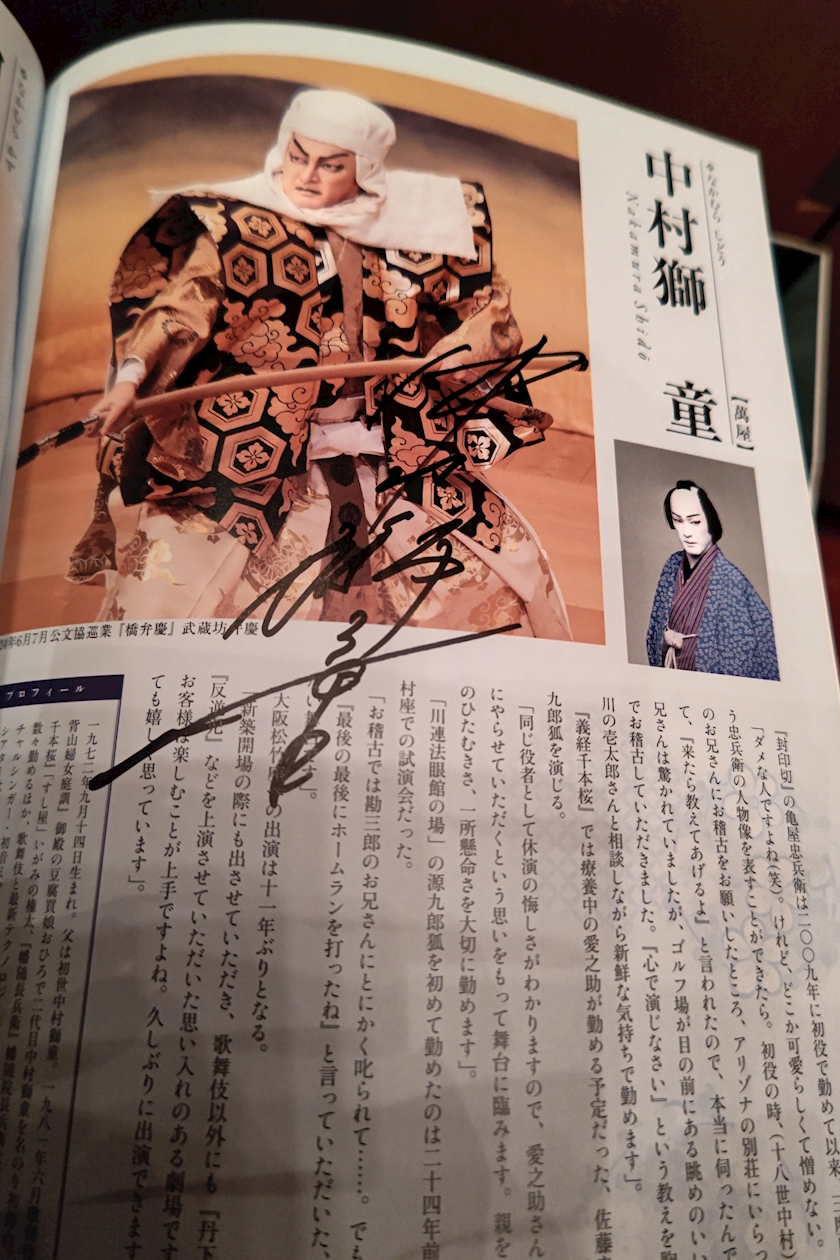 中村獅童
なかむら しどう
Nakamura Shidō
【萬屋】
年6月7月公文協巡業『橋弁慶』武蔵坊弁慶
『封印切』の亀屋忠兵衛は二〇〇九年に初役で勤めて以来
「ダメな人ですよね(笑)。けれど、どこか可愛らしくて憎めない。
う忠兵衛の人物像を表すことができたら。初役の時、(十八世中村)
のお兄さんにお稽古をお願いしたところ、アリゾナの別荘にいら
て、『来たら教えてあげるよ』と言われたので、本当に伺ったんで
兄さんは驚かれていましたが、ゴルフ場が目の前にある眺めのいい
でお稽古していただきました。『心で演じなさい』という教えを胸
川の壱太郎さんと相談しながら新鮮な気持ちで勤めます」。
『義経千本桜』では療養中の愛之助が勤める予定だった、佐藤
九郎狐を演じる。
「同じ役者として休演の悔しさがわかりますので、愛之助さん
にやらせていただくという思いをもって舞台に臨みます。親を
のひたむきさ、一所懸命さを大切に勤めます」。
「川連法眼館の場」の源九郎狐を初めて勤めたのは二十四年前
村座での試演会だった。
「お稽古では勘三郎のお兄さんにとにかく叱られて……。でも
『最後の最後にホームランを打ったね』と言っていただいた、
す」。
大阪松竹座の出演は十一年ぶりとなる。
「新築開場の際にも出させていただき、歌舞伎以外にも『丹下
『反逆児』などを上演させていただいた思い入れのある劇場です
お客様は楽しむことが上手ですよね。久しぶりに出演できます
ても嬉しく思っています」。
プロフィール
一九七二年九月十四日生まれ。父は初世中村獅童。一九八一年六月歌舞伎
背山婦女庭訓』御殿の豆腐買娘おひろで二代目中村獅童を名のり初舞台。
千本桜』「すし屋」いがみの権太、『幡随長兵衛』幡随院長兵衛
数々勤めるほか、歌舞伎と最新テクノロジー
チャルシンガー・初音ミク